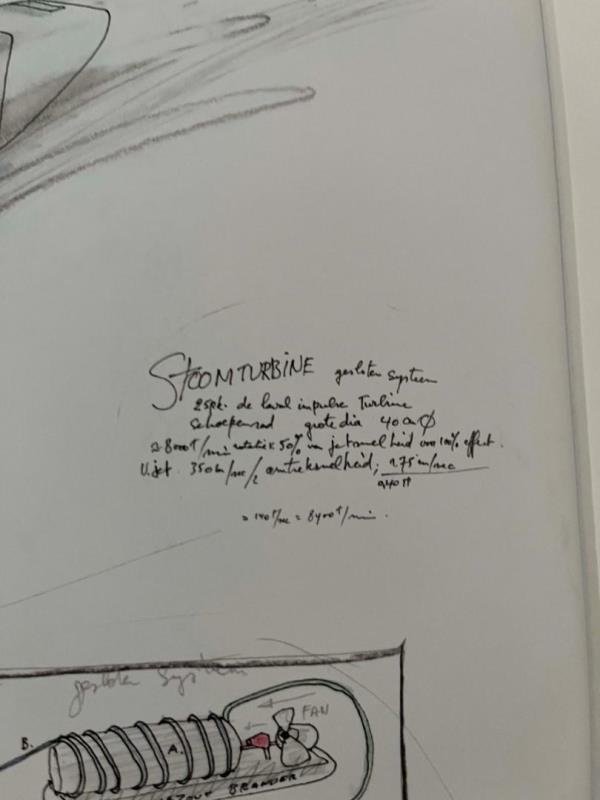 STOOMTURBINE gesloten systeem
25pk. de laval impulse Turbine
schoepenrad grote dia 40 cm Ø
50% van jetsnelheid voor 100% effect.
V.jet 350 m/sec/2 omtreksnelheid; 175 m/sec
0,40
= 140 T/sec = 8400 T/min.
gesloten systeem
FAN
B.
A.
BRANDER